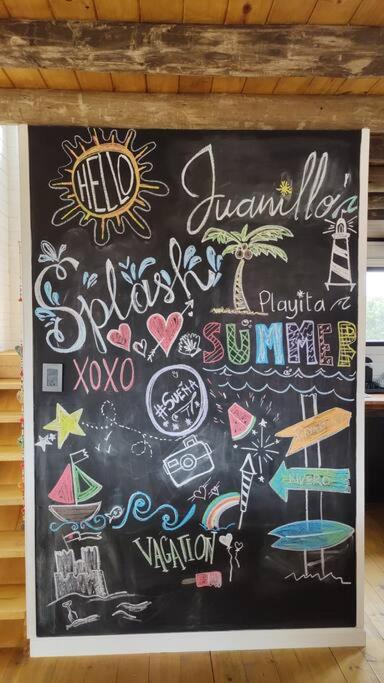 HELLO
Juanillo
Splash
Playita
SUMMER
XOXO
#SUEÑA
VACATION